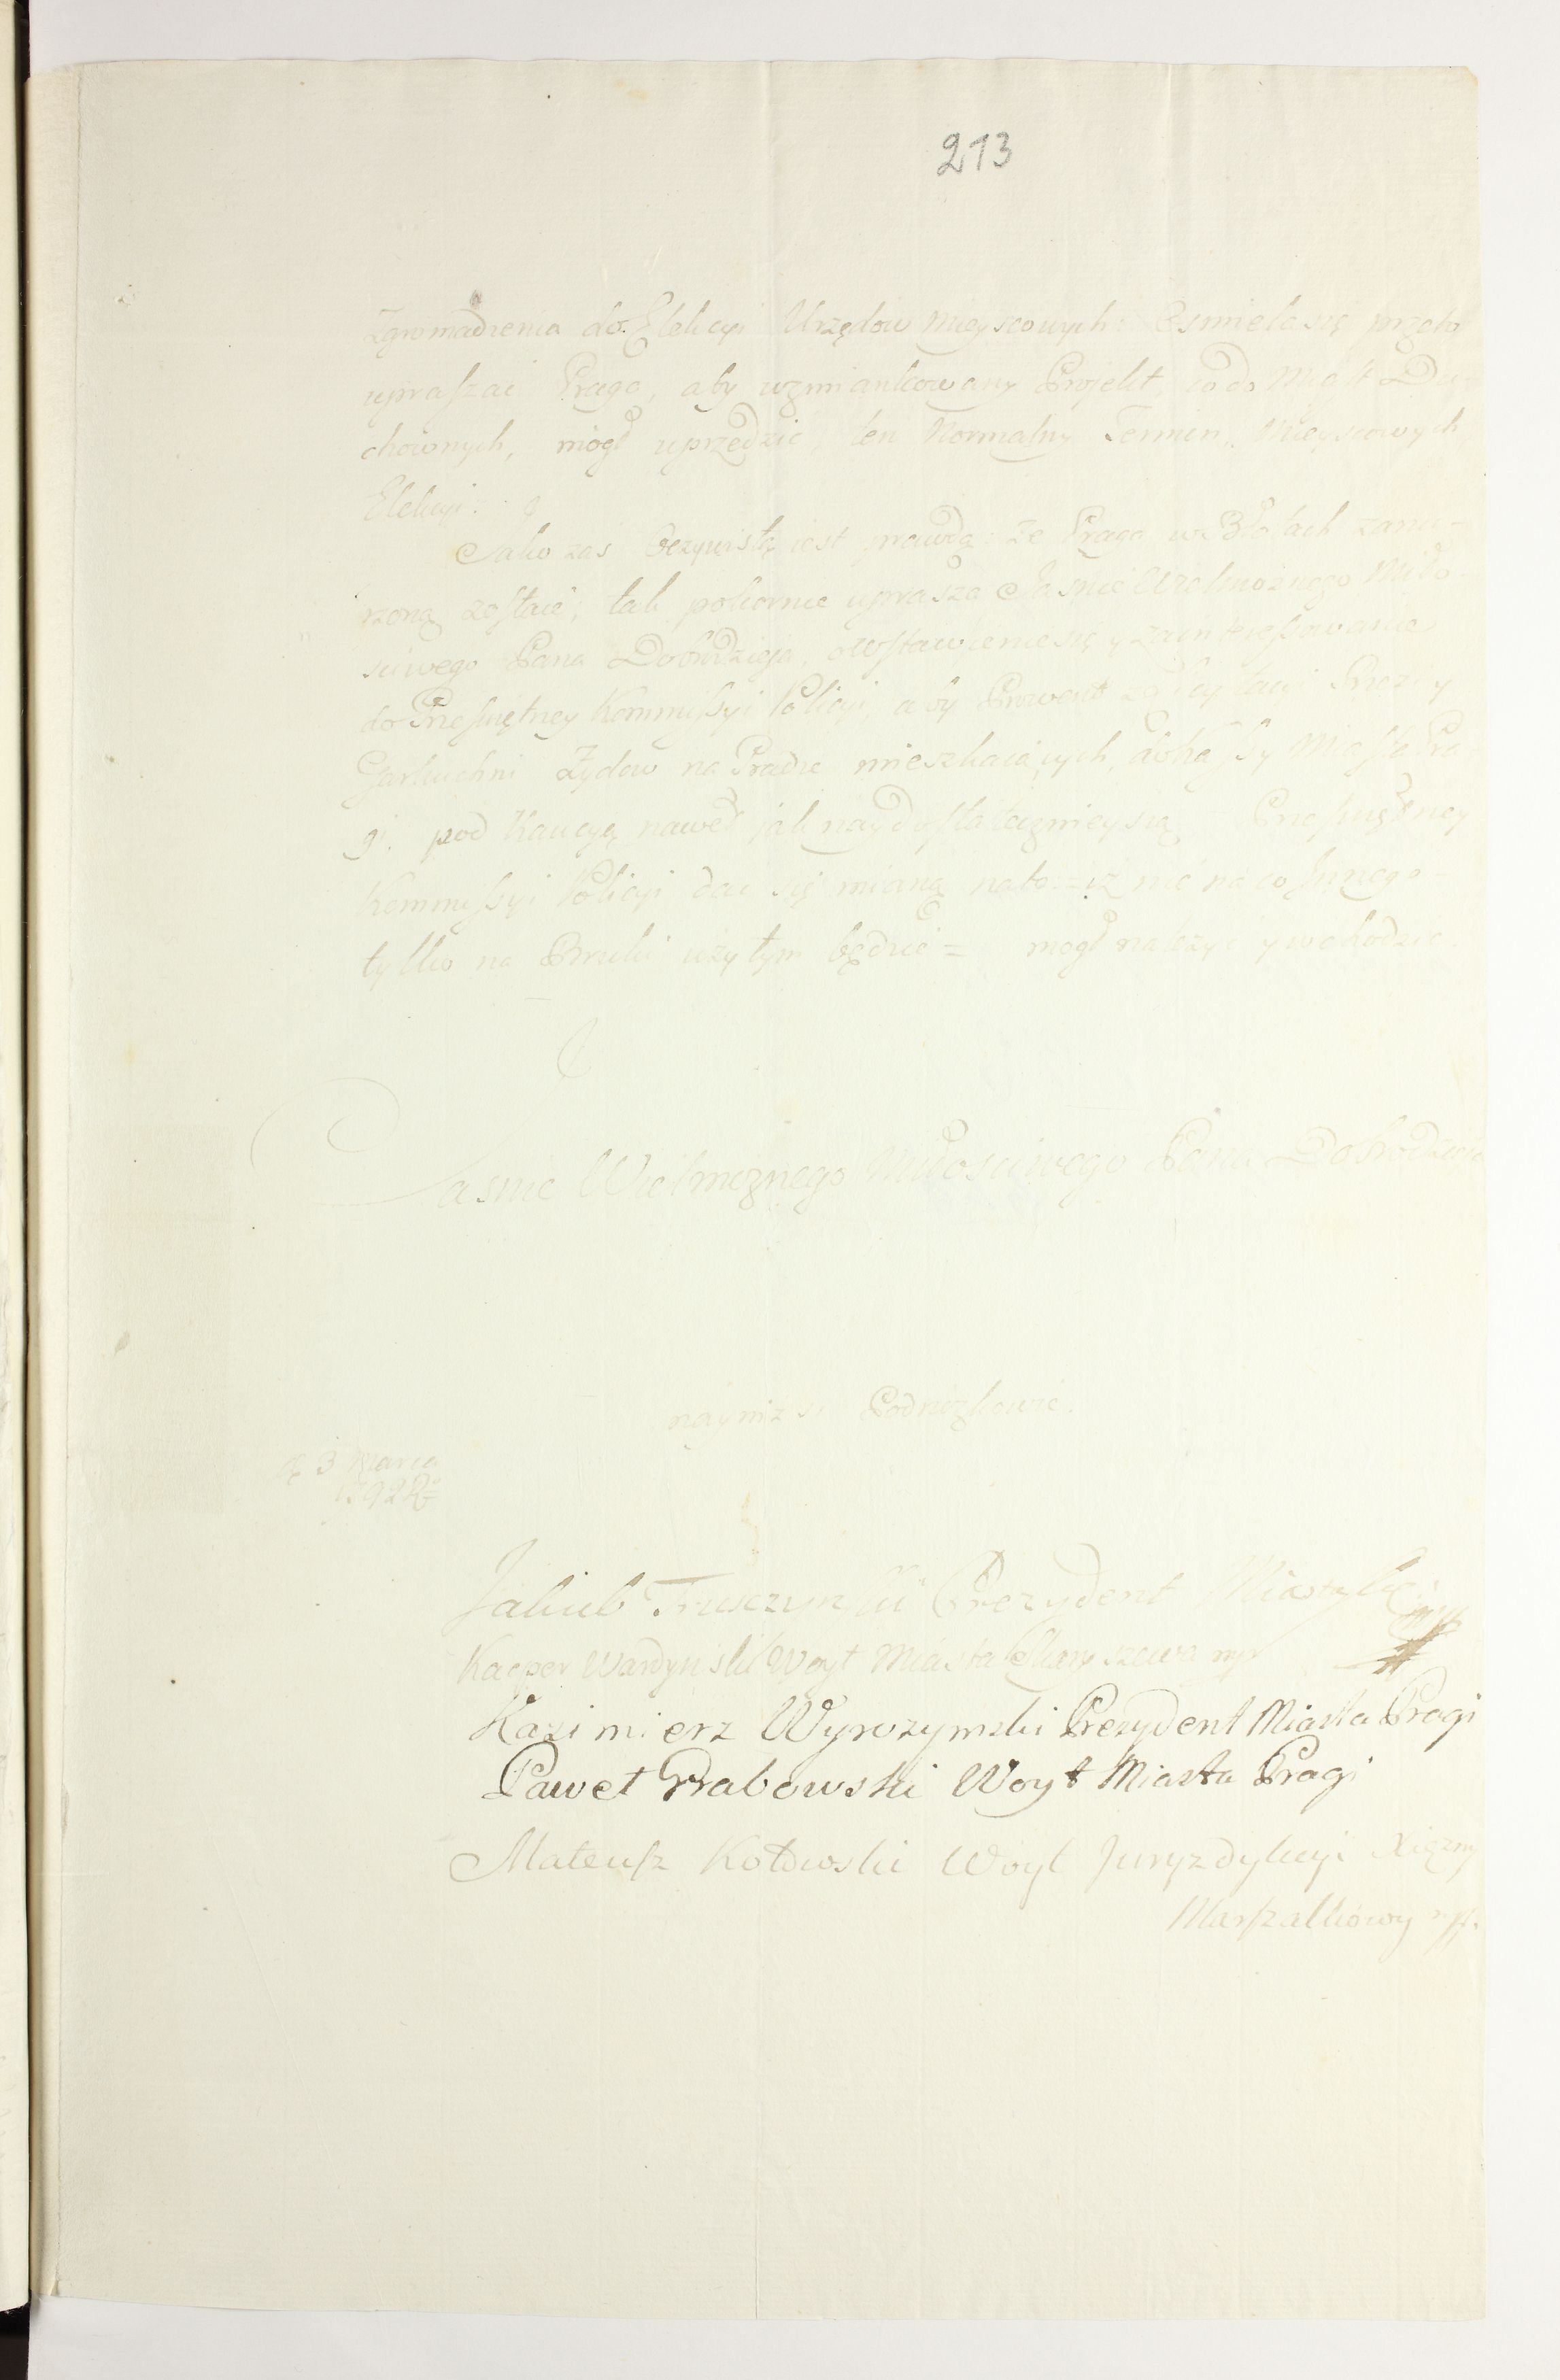 213
Zgromadzenia do Elekcyi Urzędow Mieyscowych: Osmiela się przeto
upraszać Praga, aby wzmiankowany Projekt, co do Miast Du=
chownych, mogł uprzedzić, ten Normalny Termin, Mieyscowych
Elekcyi.
Jako zas Oczywistą iest prawdą: że Praga w Błotach zanu-
rzoną zostaie; tak pokornie uprasza Jasnie Wielmoznego Miło-
sciwego Pana Dobrodzieja, o wstawienie się y zainteressowanie
do Przeswiętney Kommissyi Policyi aby Prowent z
Garkuchni Żydow na Pradze mieszkaiących, do Kassy Miasta Pra-
gi. pod Kaucyą nawet jak naydostatecznieyszą Przeswiętney
Kommissyi Policyi dac się mianą na to: iz nie na co Innego
tylko na Bruki użytym będzie = mogł należyć y wchodzic.
Jasnie Wielmoznego Miłosciwego Pana Dobrodzieia
nayniżsi Podnozkowie.
D 3 Marca
1792 R
Jakub Truszczynski Prezydent Miasta
Kacper Wardynski Woyt Miasta Skaryszewa mp
Kazimierz Wyrozymski Prezydent Miasta Pragi
Paweł Grabowski Woyt Miasta Pragi
Mateusz Kotowski Woyt Juryzdykcyi Xiężny
Marszałkowy mp.